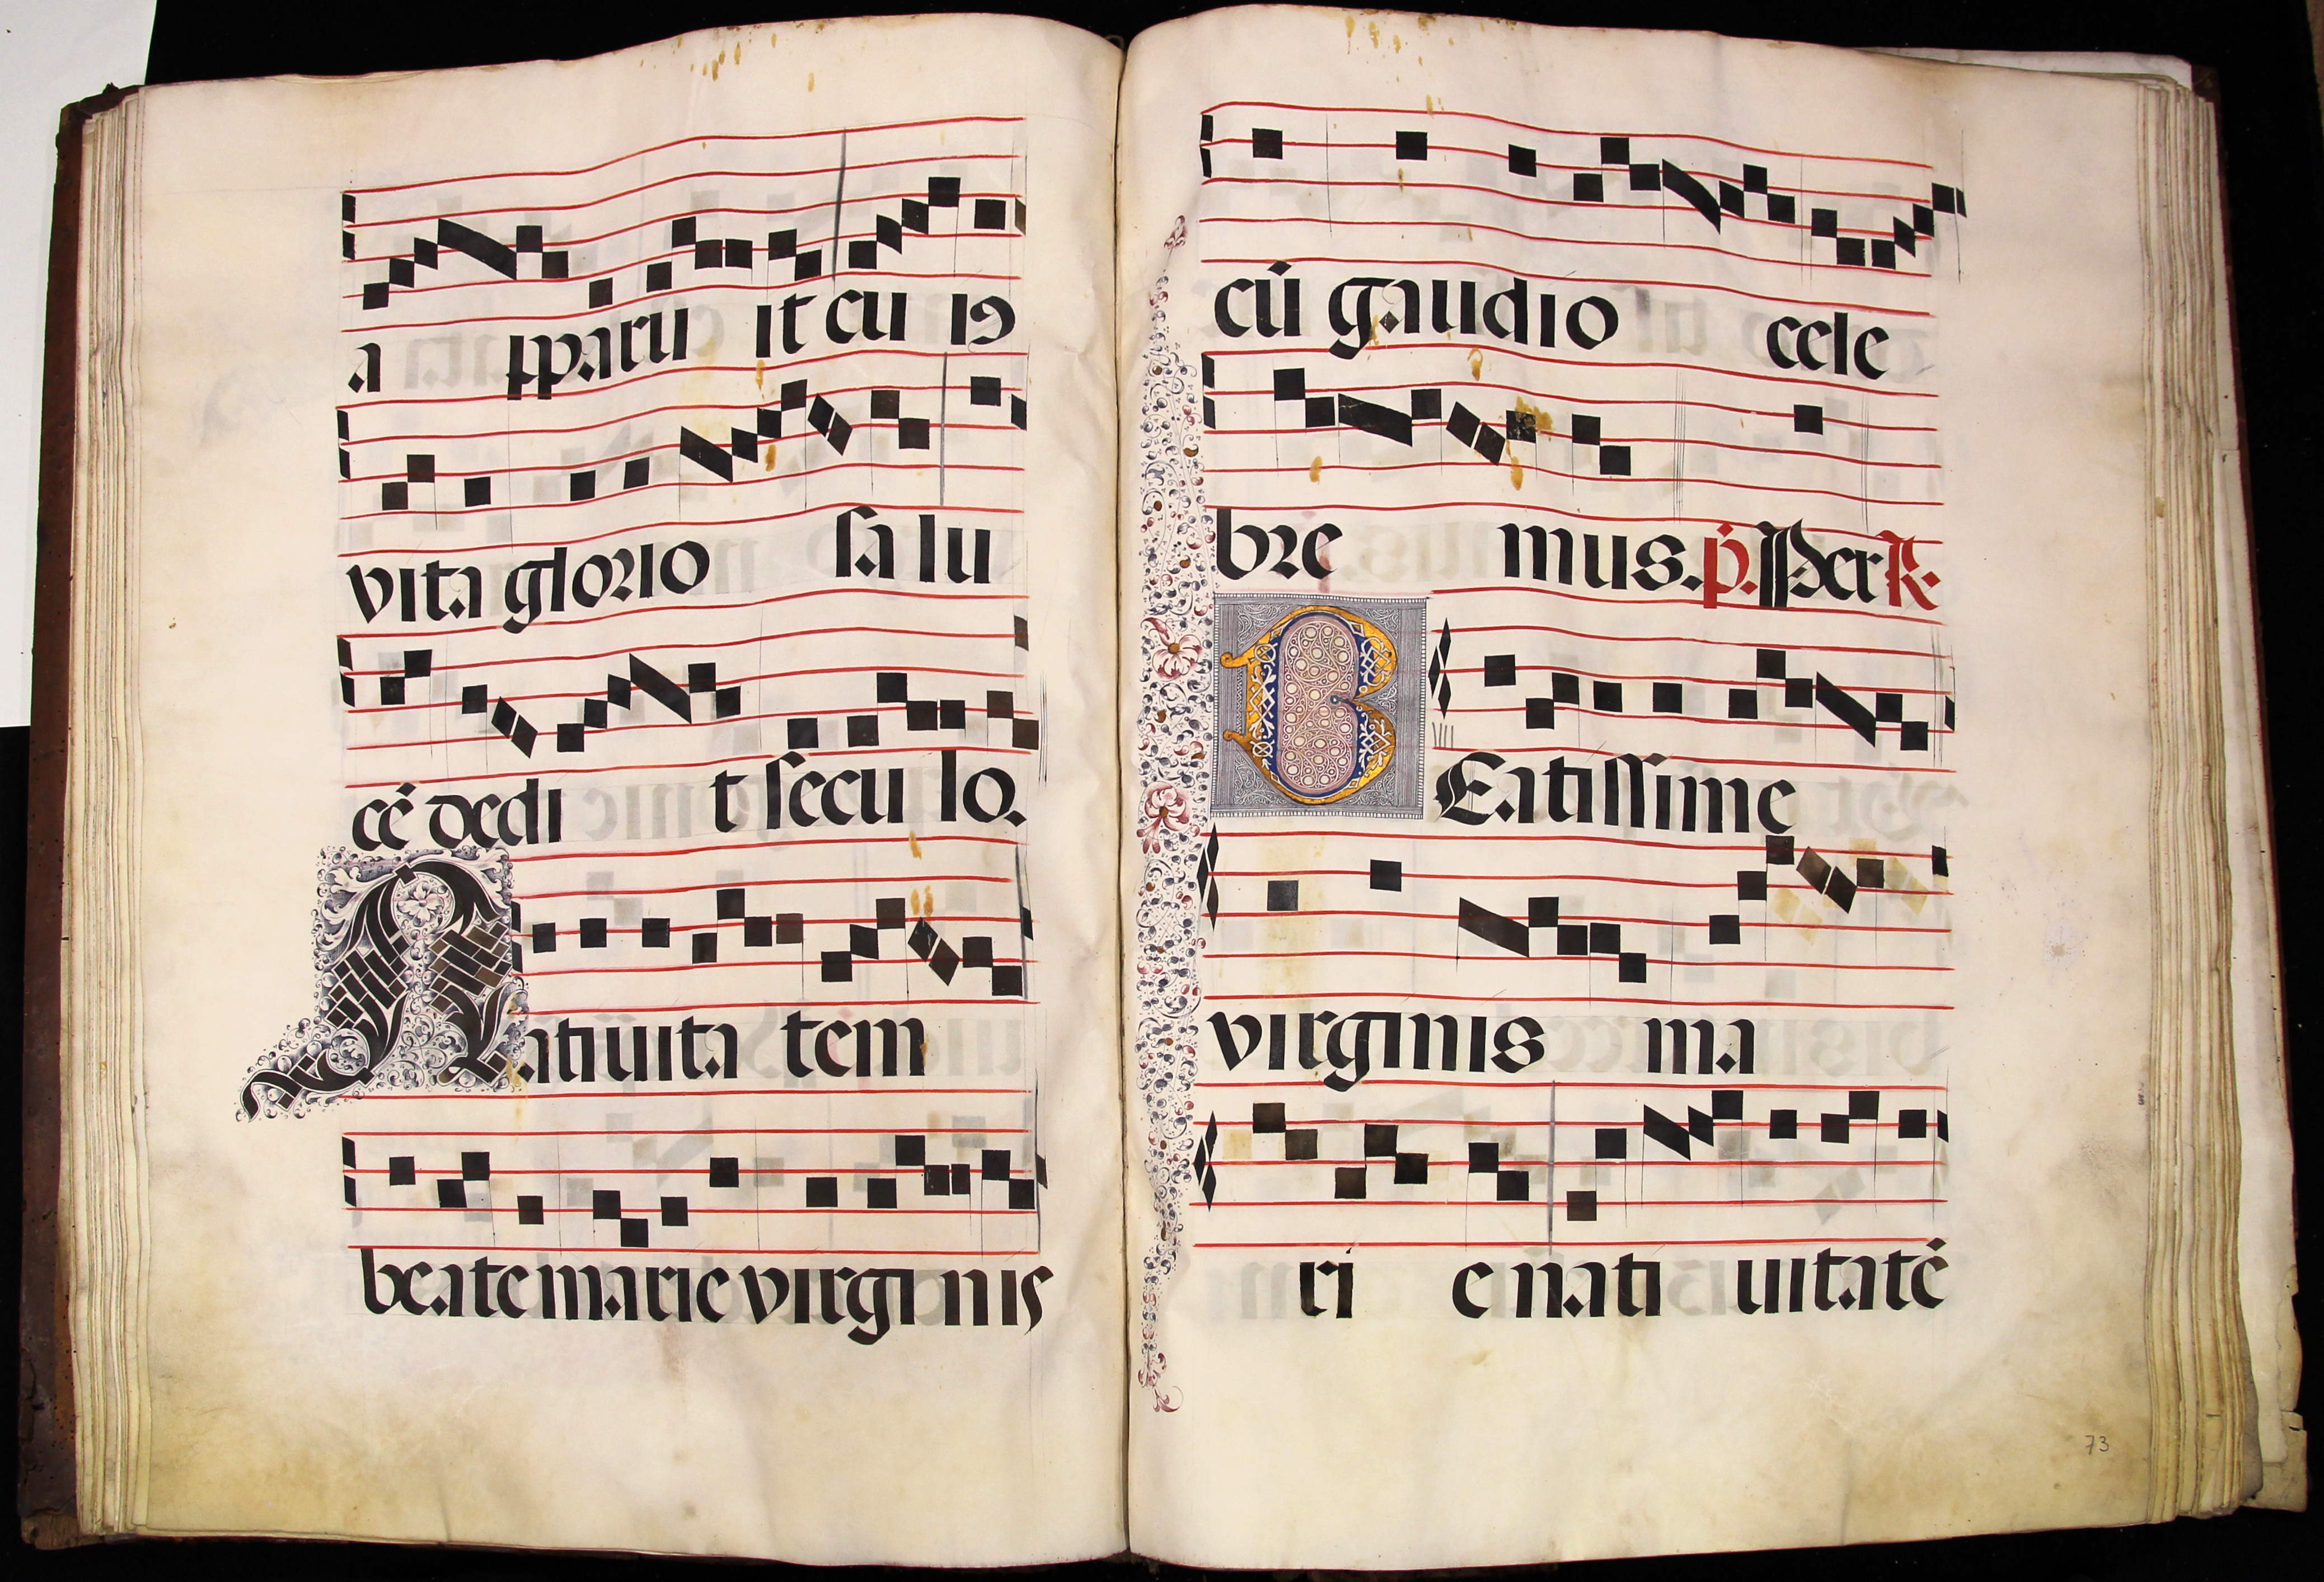 a pparu it cu iꝯ
vita glorio sa lu
cē dedi t seculo.
Natiuita tem
beate marie virginis
cū gaudio cele
bre mus. p̄. Per R.
VIII
BEatissime
virginis ma
ri e nati uitatē
73